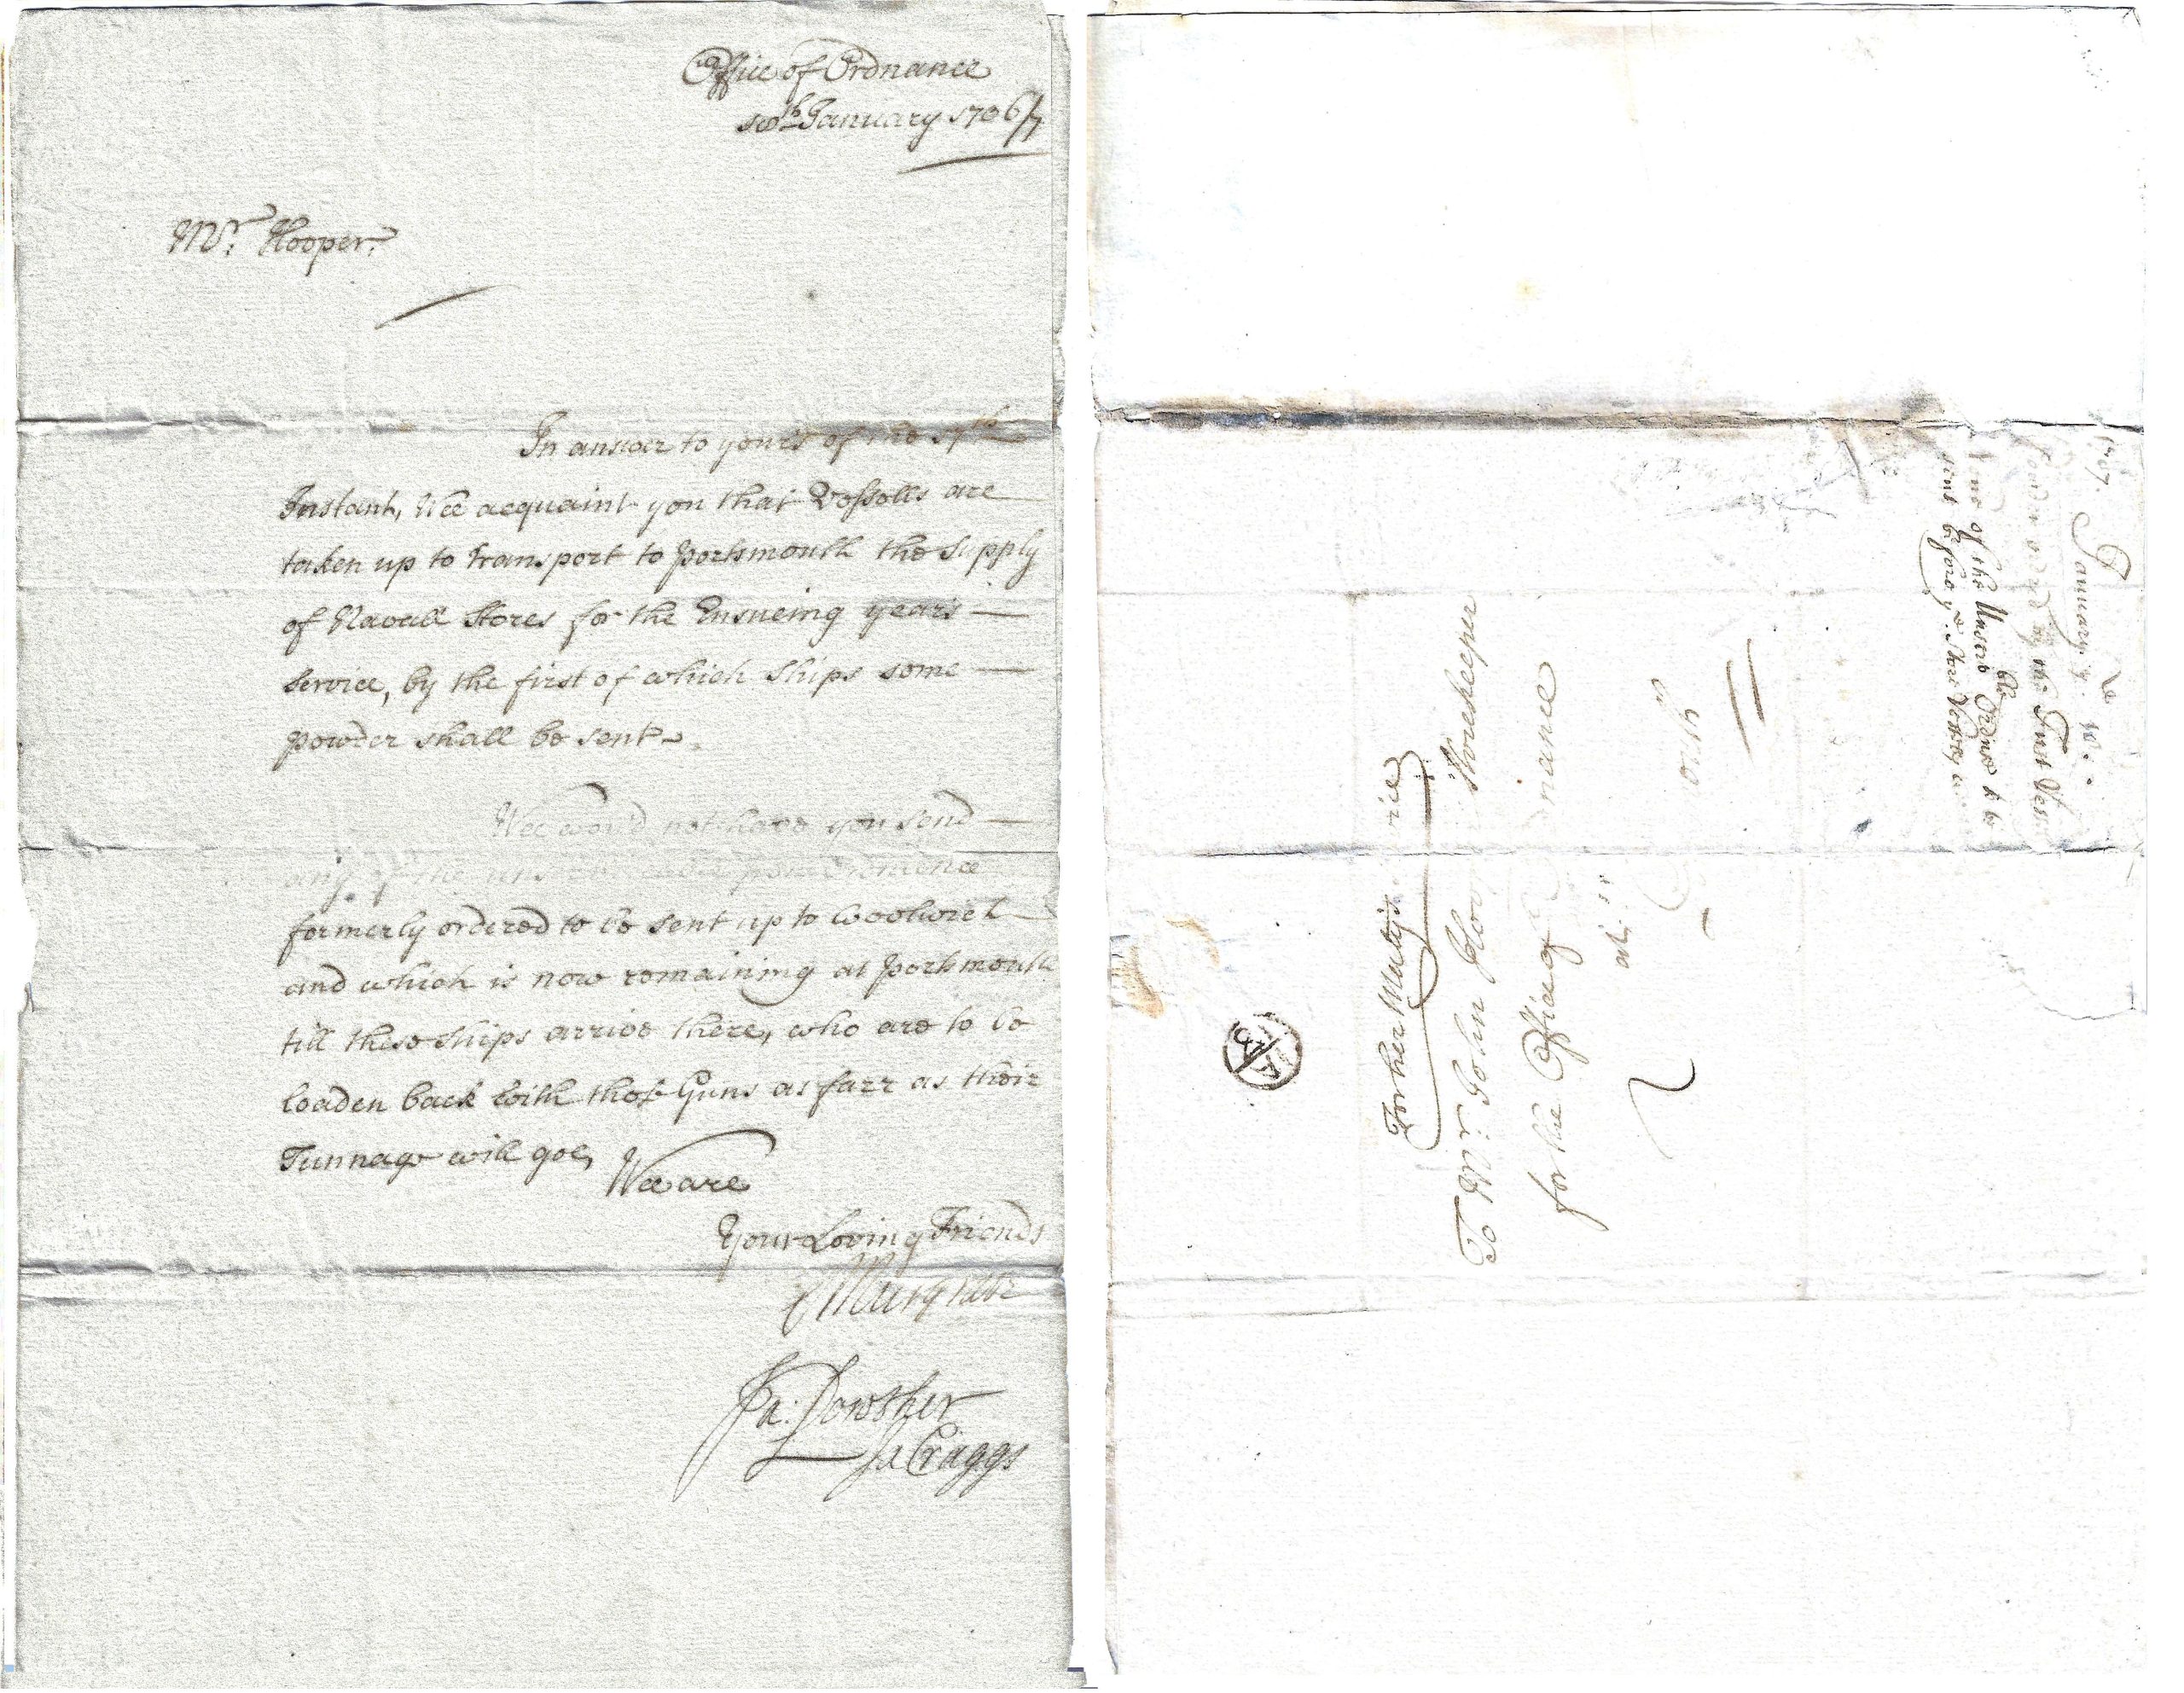 Office of Ordnance
10th January 1706/7
Mr. Hooper.
In answer to yours of the 7th
Instant, Wee acquaint you that Vessells are
taken up to transport to Portsmouth the Supply
of Navall Stores for the Ensueing years
Service, by the first of which Ships some
powder shall be sent.
Wee would not have you send
any of the
formerly ordered to be sent up to Woolwich
and which is now remaining at Portsmouth
till these Ships arrive there, who are to be
loaden back with those Guns as farr as their
Tunnage will goe,
Wee are
Your Loving Friends
Ja: Lowther
Ja Craggs
For her Matys vice
To Mr. John Hoop Storekeeper
for the Office of nance
at
outh
1707. January ye. 10.
by the First Ves
of the Unserv ble Ordnce to be
sent before ye. Stores